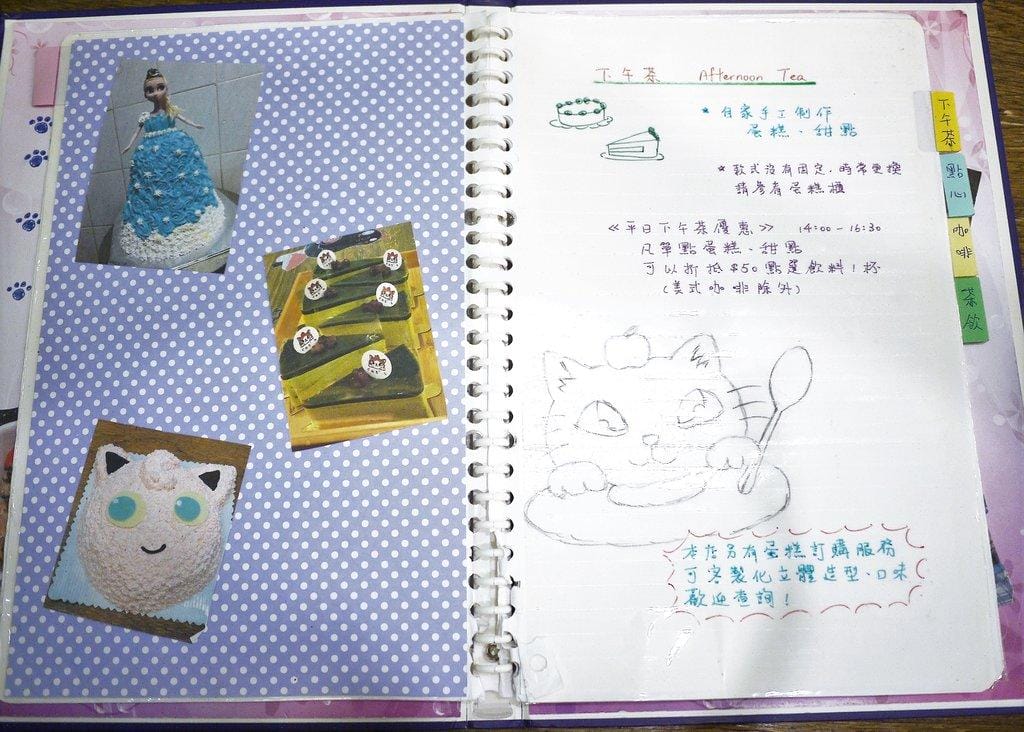 下午茶 Afternoon Tea
* 自家手工制作
蛋糕、甜點
* 款式沒有固定,時常更換
請參看蛋糕櫃
≪平日下午茶優惠≫ 14:00-16:30
凡單點蛋糕、甜點
可以折抵$50點選飲料1杯
(美式咖啡除外)
本店另有蛋糕訂購服務
可客製化立體造型、口味
歡迎查詢!
下午茶
點心
咖啡
茶飲